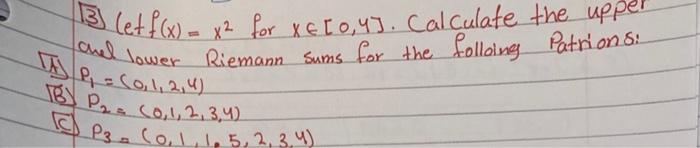 [3] Let f(x) = x² for x ∈ [0,4]. Calculate the upper
and lower Riemann sums for the folloing Patrions:
[A] P₁ = (0,1,2,4)
[B] P₂ = (0,1,2,3,4)
[C] P₃ = (0,1,1.5,2,3,4)